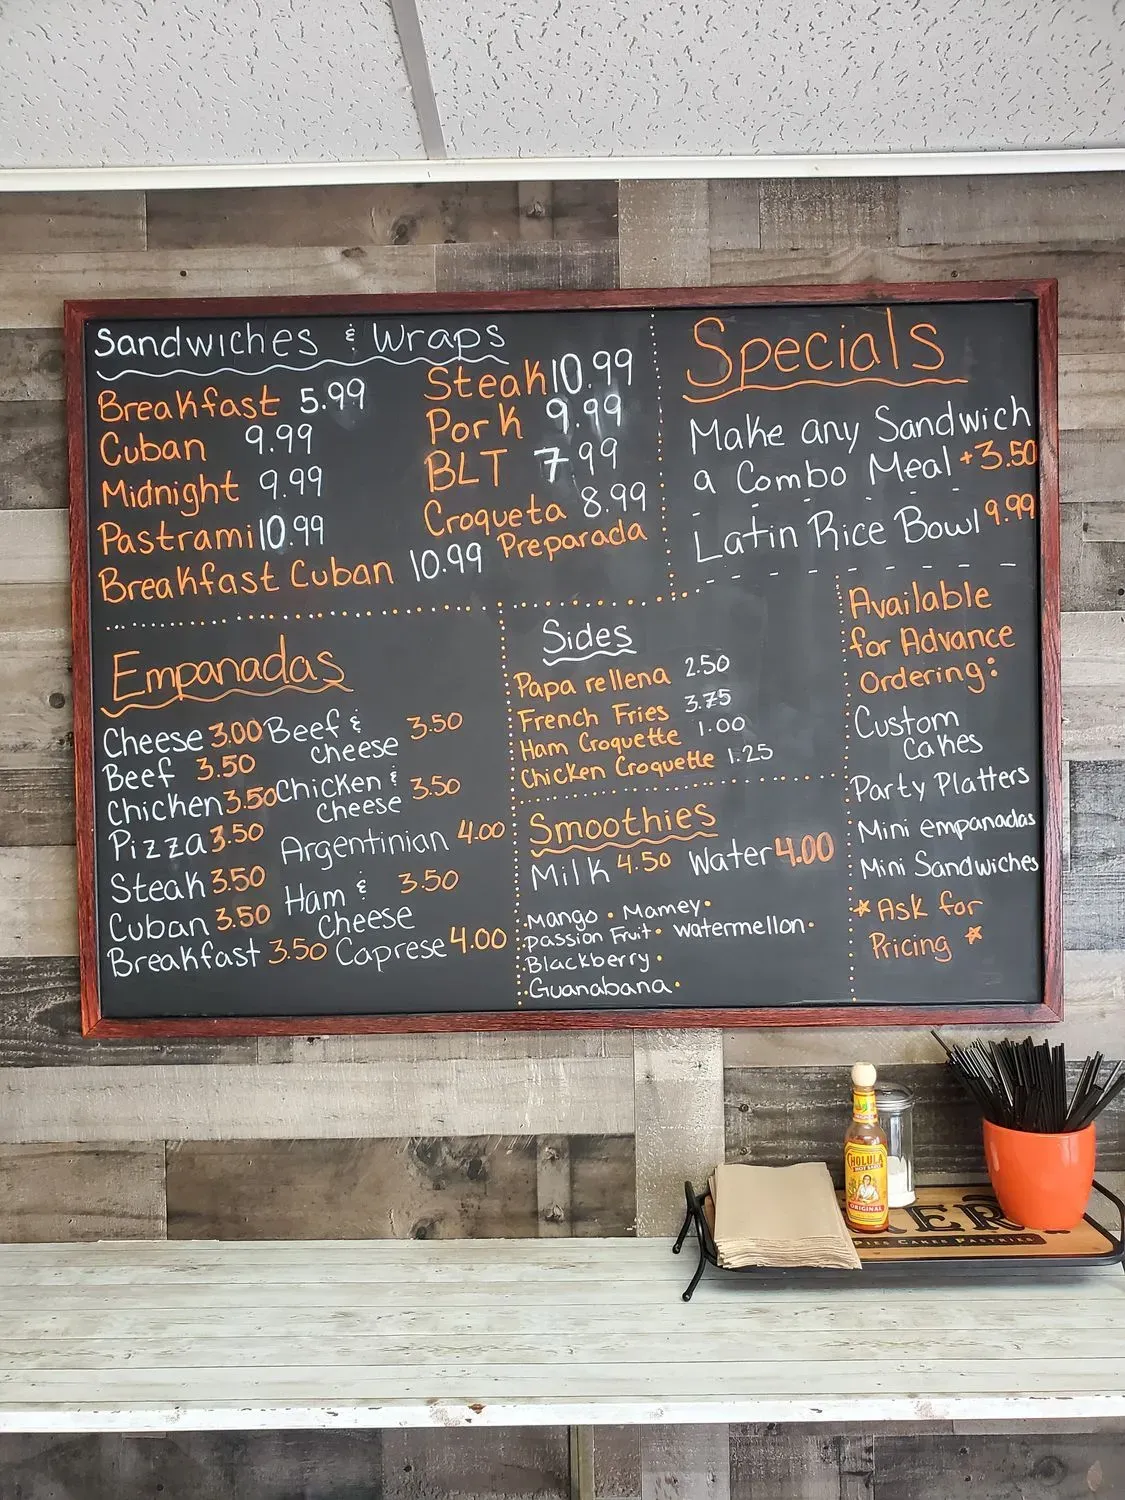 Sandwiches & Wraps
Breakfast 5.99
Cuban 9.99
Midnight 9.99
Pastrami 10.99
Breakfast Cuban 10.99
Steak 10.99
Pork 9.99
BLT 7.99
Croqueta 8.99
Preparada
Specials
Make any Sandwich
a Combo Meal +3.50
Latin Rice Bowl 9.99
Empanadas
Cheese 3.00
Beef 3.50
Chicken 3.50
Pizza 3.50
Steak 3.50
Cuban 3.50
Breakfast 3.50
Beef & 3.50
Cheese
Chicken & 3.50
Cheese
Argentinian 4.00
Ham & 3.50
Cheese
Caprese 4.00
Sides
Papa rellena 2.50
French Fries 3.75
Ham Croquette 1.00
Chicken Croquette 1.25
Smoothies
Milk 4.50 Water 4.00
Mango • Mamey•
Passion Fruit• Watermellon•
Blackberry•
Guanabana•
Available
for Advance
Ordering:
Custom
Cakes
Party Platters
Mini empanadas
Mini Sandwiches
* Ask for
Pricing *
CHOLULA
HOT SAUCE
ORIGINAL
CAKES PASTRIES